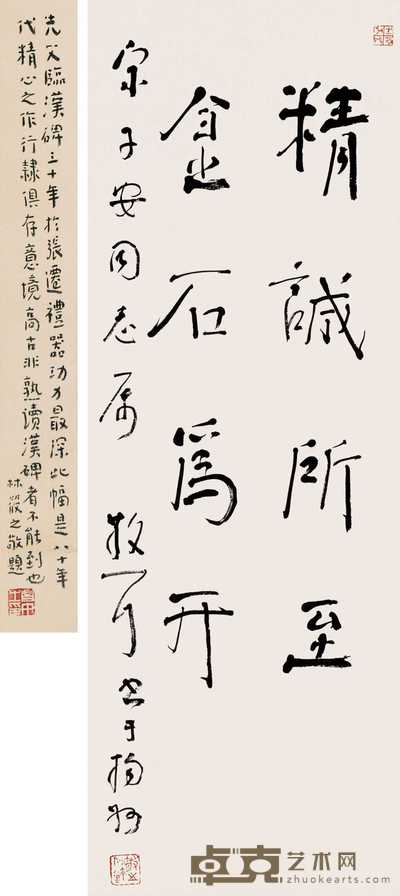 精誠所至
金石為開
宗子安同志属 散耳书于揚州
先父臨漢碑三十年於張遷禮器功力最深此幅是八十年
代精心之作行隸俱存意境高古非熟讀漢碑者不能到也
林筱之敬題
卓克艺术网
zhuokearts.com